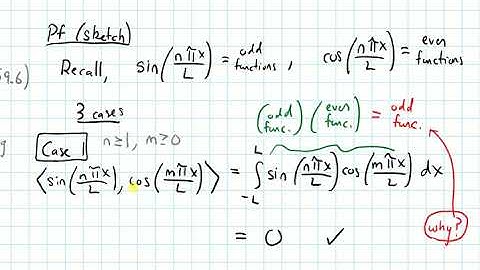 Pf (sketch)
Recall, sin(nπx/L) = odd functions, cos(nπx/L) = even functions
59.6)
3 cases
(odd func.)(even func.) = odd func.
Case 1 n≥1, m≥0
⟨sin(nπx/L), cos(mπx/L)⟩ = ∫_{-L}^{L} sin(nπx/L) cos(mπx/L) dx
why?
= 0 ✓